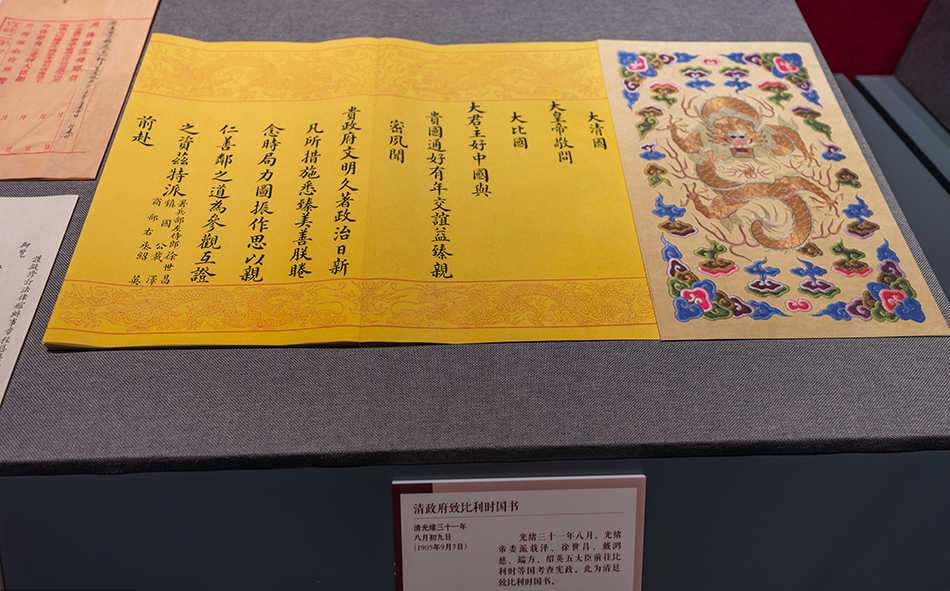 大清國
大皇帝敬問
大比國
大君主好中國與
貴國通好有年交誼益臻親
密夙聞
貴政府文明久著政治日新
凡所措施悉臻美善朕睠
念時局力圖振作思以親
仁善鄰之道為參觀互證
之資茲特派
署兵部左侍郎徐世昌
鎮國公載澤
商部右丞紹英
前赴
謹擬修訂法律館辦事章程
御覽
清政府致比利时国书
清光绪三十一年
八月初九日
(1905年9月7日)
光绪三十一年八月,光绪
帝委派载泽、徐世昌、戴鸿
慈、端方、绍英五大臣前往比
利时等国考查宪政。此为清廷
致比利时国书。